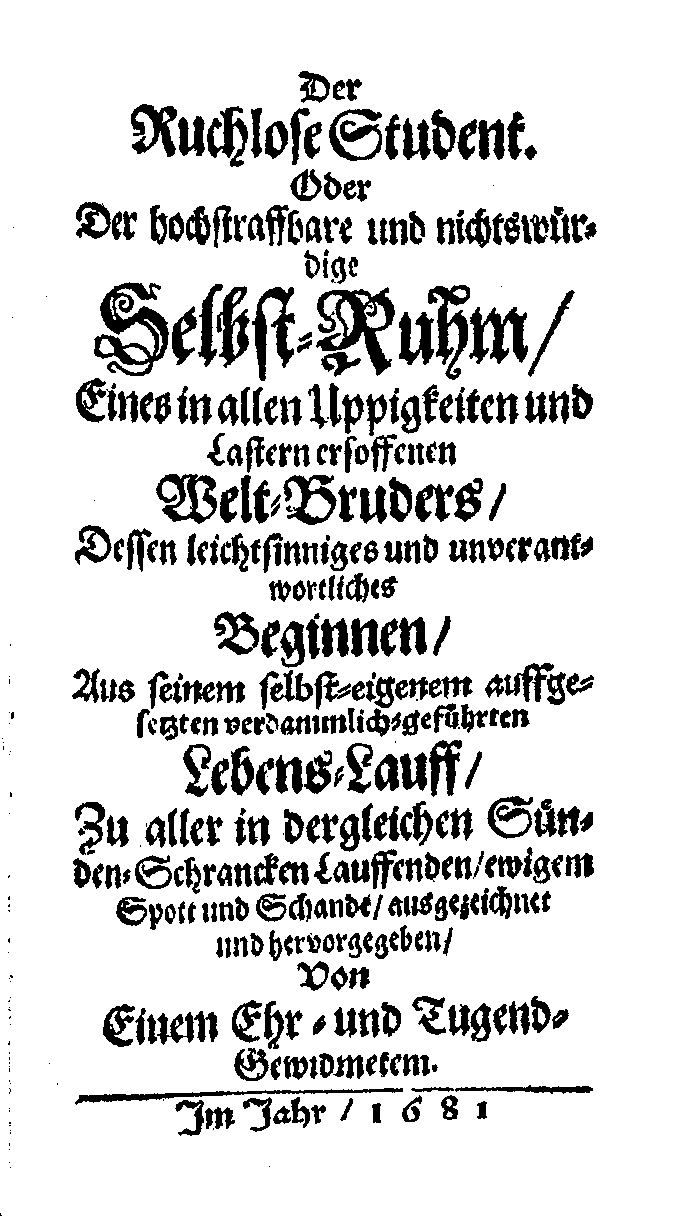 Der
Ruchlose Student.
Oder
Der hochstraffbare und nichtswür-
dige
Selbst-Ruhm/
Eines in allen Uppigkeiten und
Lastern ersoffenen
Welt-Bruders/
Dessen leichtsinniges und unverant-
wortliches
Beginnen/
Aus seinem selbst-eigenem auffge-
setzten verdammlich-geführten
Lebens-Lauff/
Zu aller in dergleichen Sün-
den-Schrancken Lauffenden/ewigem
Spott und Schande/ausgezeichnet
und hervorgegeben/
Von
Einem Ehr- und Tugend-
Gewidmetem.
Im Jahr/1681